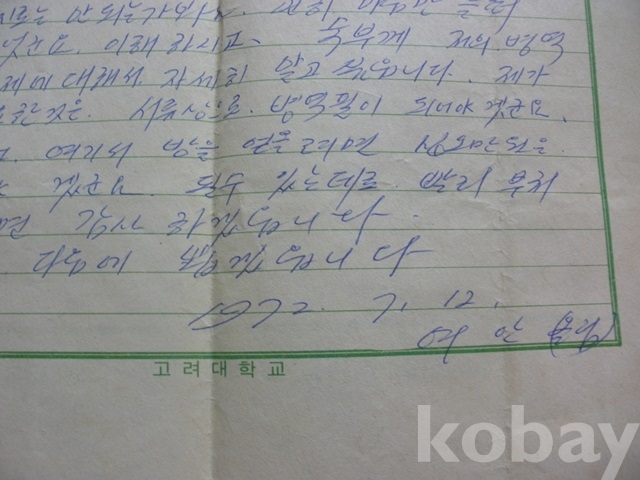 로는 안 되는가
이해 하시고 숙부께 저의 병역
제에 대해서 자세히 알고 싶읍니다. 제가
한것은. 서류상으로. 병역필이 되어야겠군요.
여기서 방을 얻을려면 십오만원은
겠군요. 될수 있는데로 빨리 부쳐
면 감사 하겠읍니다.
다음에 뵙겠읍니다
1972. 7. 12.
고려대학교
kobay